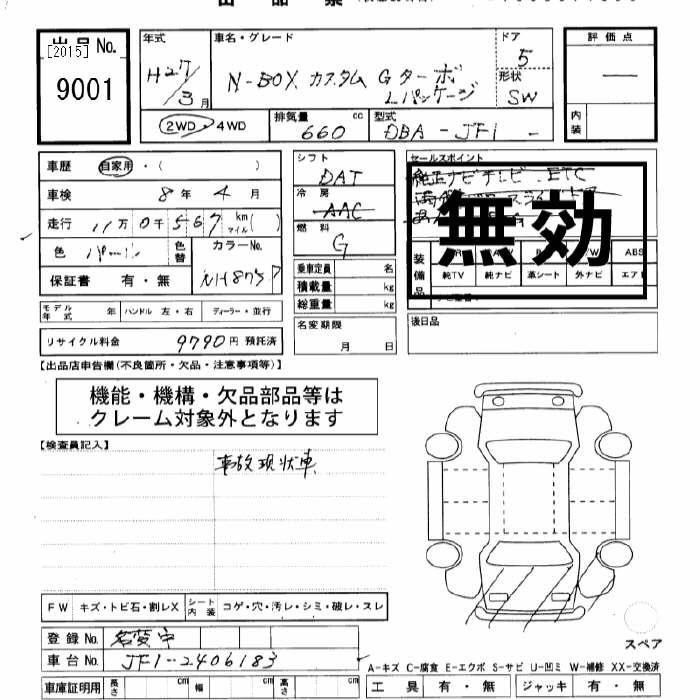 出品票
出品 No.
[2015]
9001
年式
H27/3月
車名・グレード
N-BOX カスタム Gターボ
Lパッケージ
ドア
5
形状
SW
評価点
—
内装
2WD・4WD
排気量 660 cc
型式 DBA-JF1
車歴 自家用・( )
車検 8年4月
走行 11万0千567 km マイル( )
色 パール
色替
カラーNo.
NH875P
保証書 有・無
モデル年式 年 ハンドル 左・右 ディーラー・並行
リサイクル料金 9790円 預託済
シフト
DAT
冷房
AAC
燃料
G
乗車定員 名
積載量 kg
総重量 kg
名変期限
月 日
セールスポイント
純正ナビテレビ ETC
無効
装備品
ABS
純TV 純ナビ 革シート 外ナビ エアB
後日品
【出品店申告欄(不良箇所・欠品・注意事項等)】
機能・機構・欠品部品等は
クレーム対象外となります
【検査員記入】
事故現状車
FW キズ・トビ石・割レX シート内装 コゲ・穴・汚レ・シミ・破レ・スレ
登録 No. 名変中
車台 No. JF1-2406183
車庫証明用 長さ cm 幅 cm 高さ cm
スペア
A-キズ C-腐食 E-エクボ S-サビ U-凹ミ W-補修 XX-交換済
工具 有・無 ジャッキ 有・無